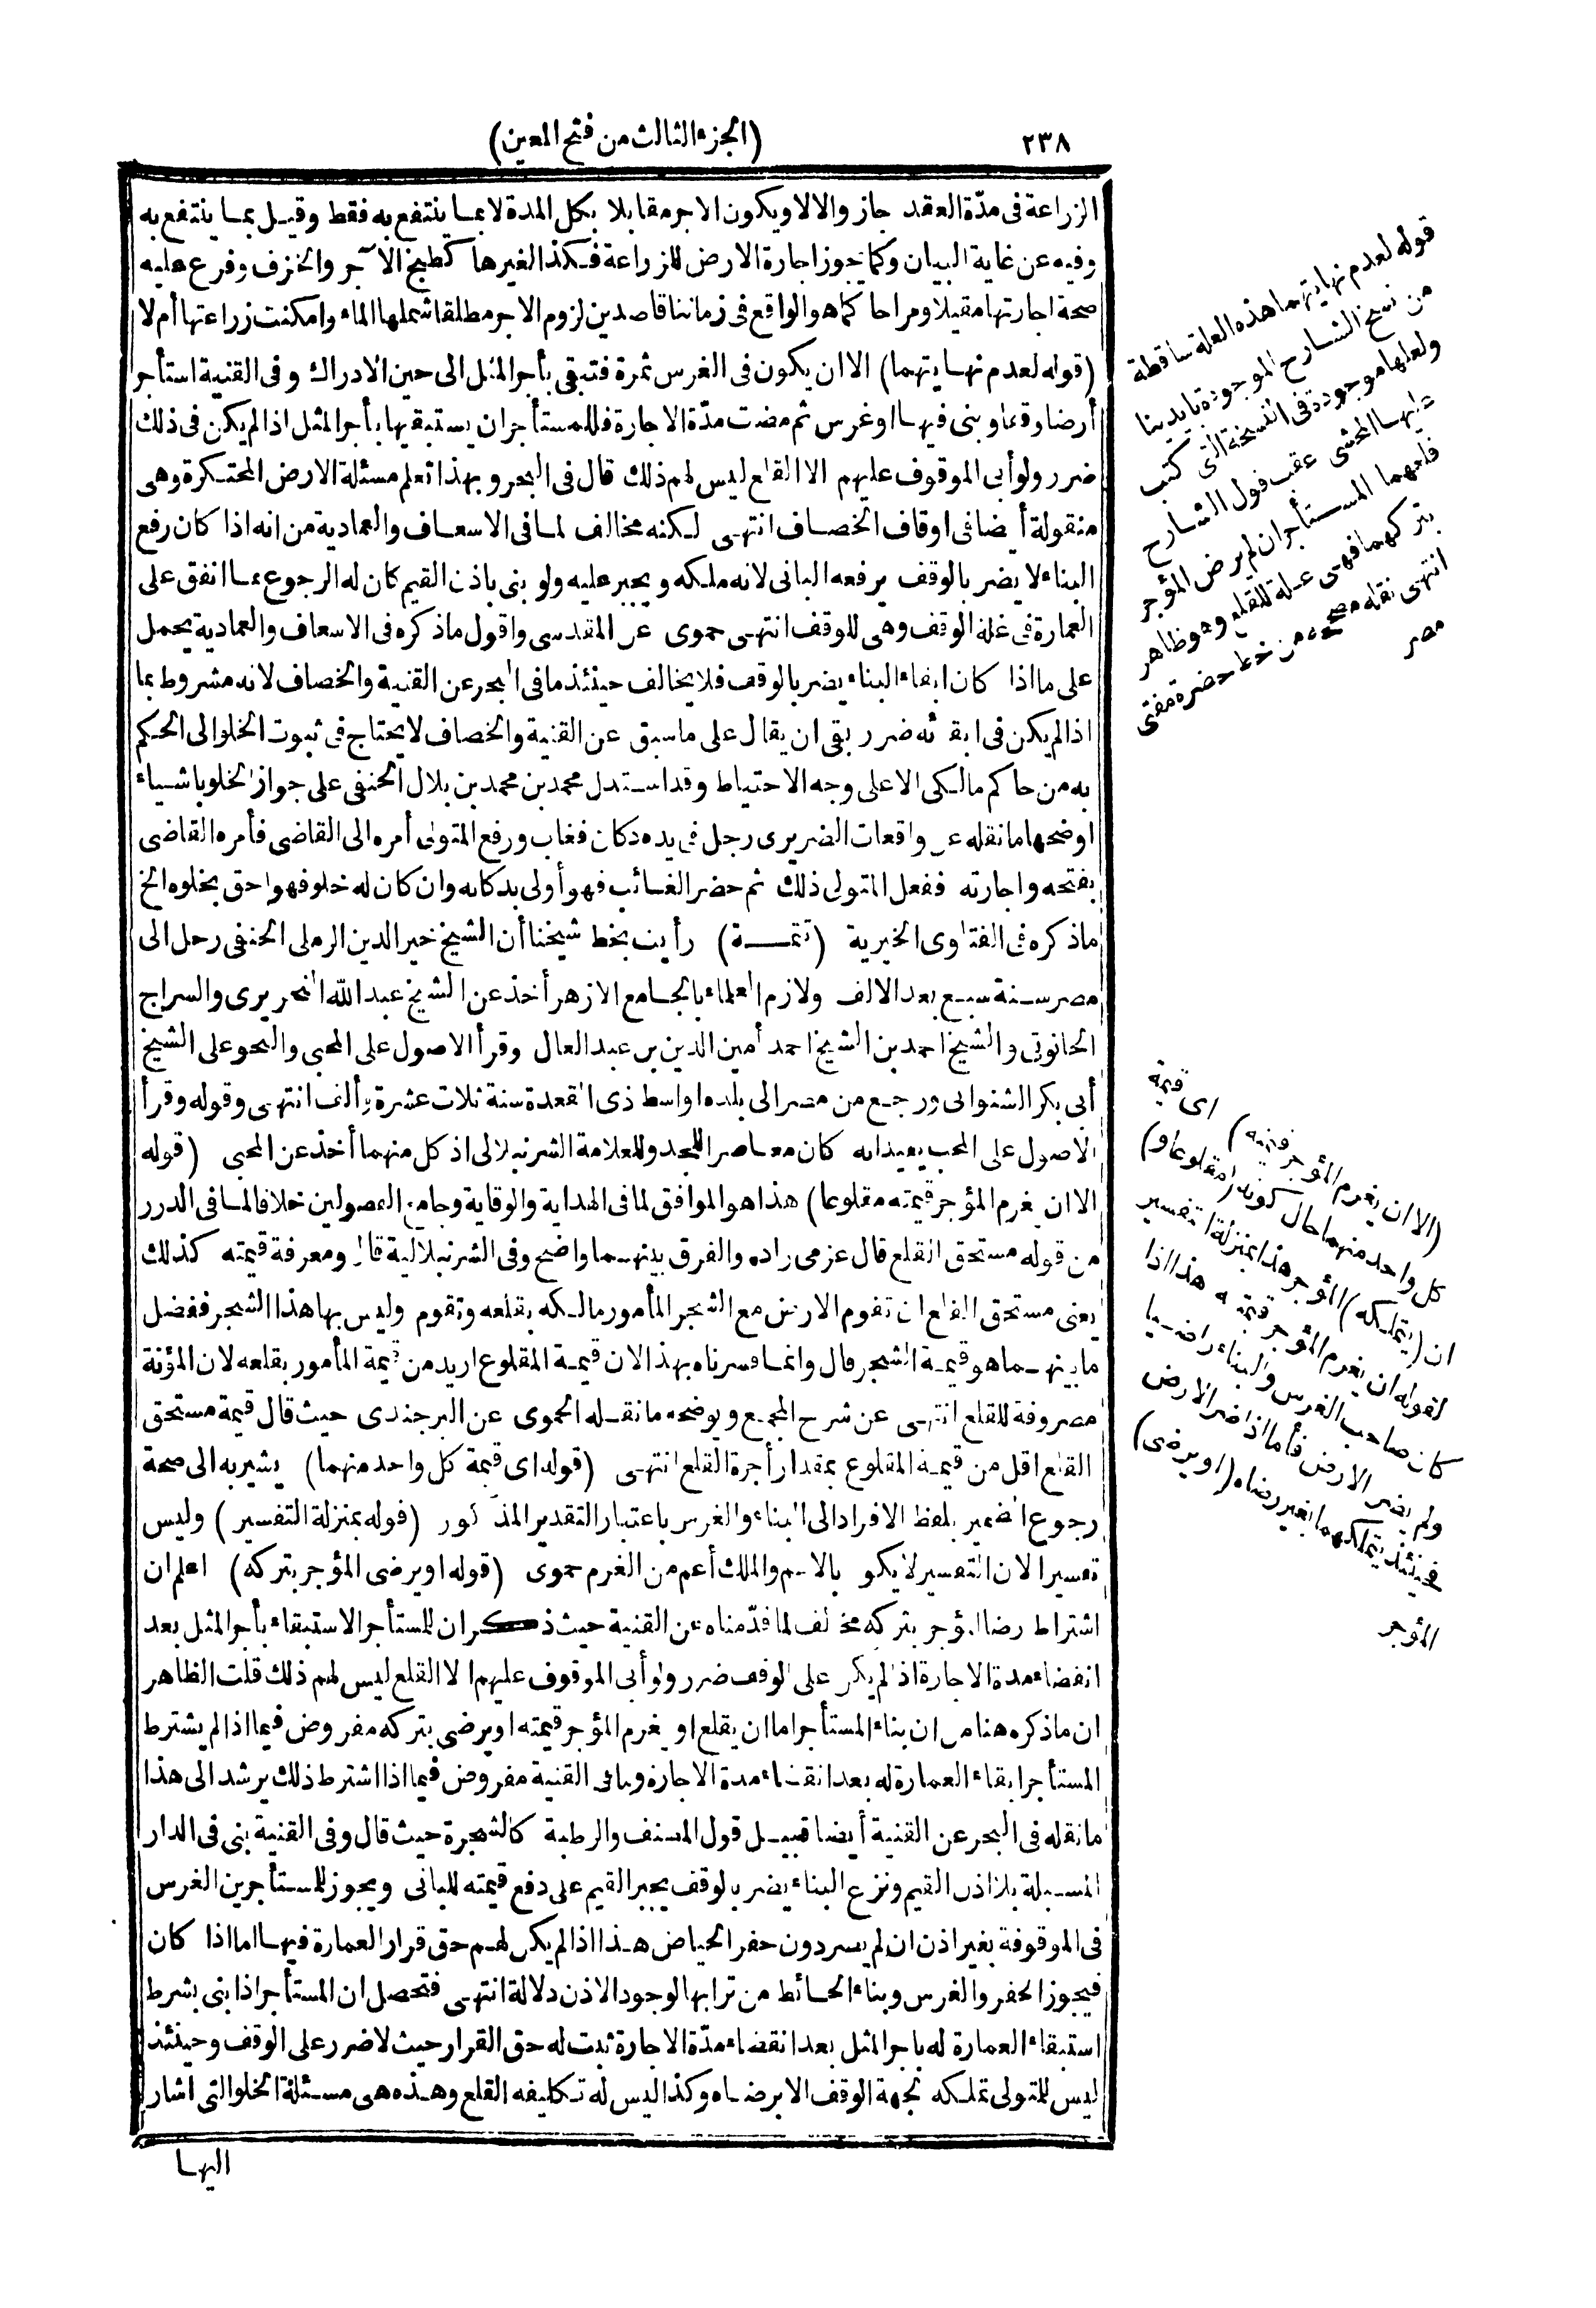 ٢٣٨
(الجزء الثالث من فتح المعين)
الزراعة فى مدّة العقد جاز والا لا ويكون الاجر مقابلا بكل المدة لا بما ينتفع به فقط وقيل بما ينتفع به
وفيه عن غاية البيان وكما يجوز اجارة الارض للزراعة فكذا لغيرها كطبخ الآجر والخزف وفرع عليه
صحة اجارتها مقيلا ومراحا كما هو الواقع فى زماننا قاصدين لزوم الاجر مطلقا شملها الماء وامكنت زراعتها أم لا
(قوله لعدم نهايتهما) الا ان يكون فى الغرس ثمرة فتبقى بأجر المثل الى حين الادراك وفى القنية استأجر
أرضا وقفا وبنى فيها او غرس ثم مضت مدّة الاجارة فللمستأجر ان يستبقيها بأجر المثل اذا لم يكن فى ذلك
ضرر ولو أبى الموقوف عليهم الا القلع ليس لهم ذلك قال فى البحر وبهذا تعلم مسئلة الارض المحتكرة وهى
منقولة أيضا فى اوقاف الخصاف انتهى لكنه مخالف لما فى الاسعاف والعمادية من انه اذا كان رفع
البناء لا يضر بالوقف يرفعه البانى لانه ملكه ويجبر عليه ولو بنى باذن القيم كان له الرجوع بما انفق على
العمارة فى غلة الوقف وهى للوقف انتهى حموى عن المقدسى واقول ما ذكره فى الاسعاف والعمادية يحمل
على ما اذا كان ابقاء البناء يضر بالوقف فلا يخالف حينئذ ما فى البحر عن القنية والخصاف لانه مشروط بما
اذا لم يكن فى ابقائه ضرر بقى ان يقال على ما سبق عن القنية والخصاف لا يحتاج فى ثبوت الخلو الى الحكم
به من حاكم مالكى الا على وجه الاحتياط وقد استدل محمد بن محمد بن بلال الحنفى على جواز الخلو باشياء
اوضحها ما نقله عن واقعات الضريرى رجل فى يده دكان فغاب ورفع المتولى أمره الى القاضى فأمره القاضى
بفتحه واجارته ففعل المتولى ذلك ثم حضر الغائب فهو أولى بدكانه وان كان له خلو فهو احق بخلوه الخ
ما ذكره فى الفتاوى الخيرية (تتمــة) رأيت بخط شيخنا أن الشيخ خير الدين الرملى الحنفى رحل الى
مصر سنة سبع بعد الالف ولازم العلماء بالجامع الازهر أخذ عن الشيخ عبد الله النحريرى والسراج
الحانوتى والشيخ احمد بن الشيخ احمد أمين الدين بن عبد العال وقرأ الاصول على المحبى والنحو على الشيخ
أبى بكر الشنوانى ورجع من مصر الى بلده اواسط ذى القعدة سنة ثلاث عشرة وألف انتهى وقوله وقرأ
الاصول على المحب يفيد انه كان معاصرا للجد وللعلامة الشرنبلالى اذ كل منهما أخذ عن المحبى (قوله
الا ان يغرم المؤجر قيمته مقلوعا) هذا هو الموافق لما فى الهداية والوقاية وجامع الفصولين خلافا لما فى الدرر
من قوله مستحق القلع قال عزمى زاده والفرق بينهما واضح وفى الشرنبلالية قال ومعرفة قيمته كذلك
يعنى مستحق القلع ان تقوم الارض مع الشجر المأمور مالكه بقلعه وتقوم وليس بها هذا الشجر ففضل
ما بينهما هو قيمة الشجر قال وانما فسرناه بهذا لان قيمة المقلوع ازيد من قيمة المأمور بقلعه لان المؤنة
مصروفة للقلع انتهى عن شرح المجمع ويوضحه ما نقله الحموى عن البرجندى حيث قال قيمة مستحق
القلع اقل من قيمة المقلوع بمقدار أجرة القلع انتهى (قوله اى قيمة كل واحد منهما) يشير به الى صحة
رجوع الضمير بلفظ الافراد الى البناء والغرس باعتبار التقدير المذكور (قوله بمنزلة التفسير) وليس
تفسيرا لان التفسير لا يكون بالاعم والملك أعم من الغرم حموى (قوله او يرضى المؤجر بتركه) اعلم ان
اشتراط رضا المؤجر بتركه مخالف لما قدّمناه عن القنية حيث ذكر ان للمستأجر الاستبقاء بأجر المثل بعد
انقضاء مدة الاجارة اذا لم يكن على الوقف ضرر ولو أبى الموقوف عليهم الا القلع ليس لهم ذلك قلت الظاهر
ان ما ذكره هنا من ان بناء المستأجر اما ان يقلع او يغرم المؤجر قيمته او يرضى بتركه مفروض فيما اذا لم يشترط
المستأجر ابقاء العمارة له بعد انقضاء مدة الاجارة وما فى القنية مفروض فيما اذا اشترط ذلك يرشد الى هذا
ما نقله فى البحر عن القنية أيضا قبيل قول المصنف والرطبة كالشجرة حيث قال وفى القنية بنى فى الدار
المسبلة بلا اذن القيم ونزع البناء يضر بالوقف يجبر القيم على دفع قيمته للبانى ويجوز للمستأجرين الغرس
فى الموقوفة بغير اذن ان لم يضر دون حفر الحياض هذا اذا لم يكن لهم حق قرار العمارة فيها اما اذا كان
فيجوز الحفر والغرس وبناء الحائط من ترابها لوجود الاذن دلالة انتهى فتحصل ان المستأجر اذا بنى بشرط
استبقاء العمارة له باجر المثل بعد انقضاء مدّة الاجارة ثبت له حق القرار حيث لا ضرر على الوقف وحينئذ
ليس للمتولى تملكه لجهة الوقف الا برضاه وكذا ليس له تكليفه القلع وهذه هى مسئلة الخلو التى اشار
اليها
قوله لعدم نهايتهما هذه العلة ساقطة
من نسخ الشارح الموجودة بايدينا
ولعلها موجودة فى النسخة التى كتب
عليها المحشى عقب قول الشارح
قلعهما المستأجر ان لم يرض المؤجر
بتركهما فهى علة للقلع وهو ظاهر
انتهى نقله مصححه من خط حضرة مفتى
مصر
(الا ان يغرم المؤجر قيمته) اى قيمة
كل واحد منهما حال كونه (مقلوعا و)
ان (يتملكه) المؤجر هذا بمنزلة التفسير
لقوله ان يغرم المؤجر قيمته هذا اذا
كان صاحب الغرس والبناء راضيا
ولم يضر الارض فأما اذا ضر الارض
فحينئذ يتملكهما بغير رضاه (او يرضى)
المؤجر